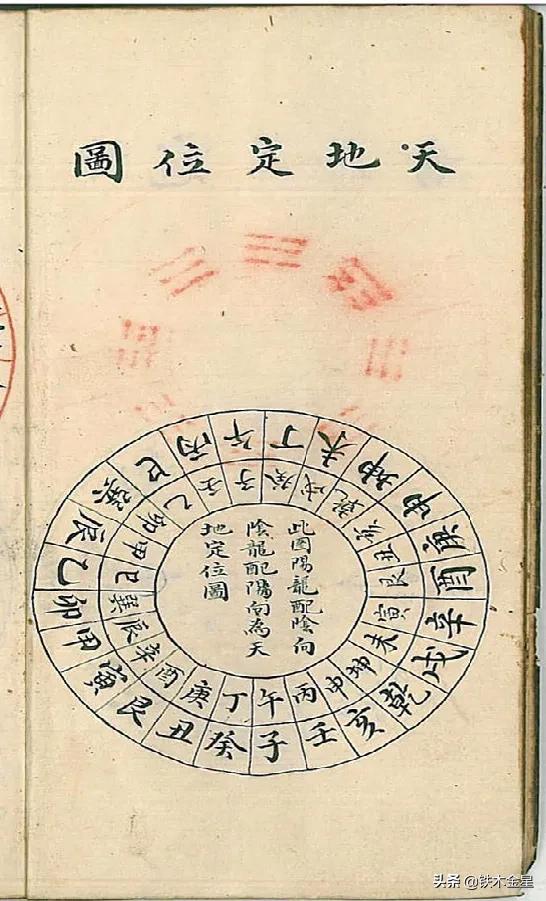 天地定位圖
午丁未坤申庚酉辛戌乾亥壬子癸丑艮寅甲卯乙辰巽巳丙
子癸戌乾亥丑艮寅未坤申丙午丁庚酉辛辰巽巳甲卯乙壬
此圖陽龍配陰向
陰龍配陽向為天
地定位圖
头条 @铁木金星